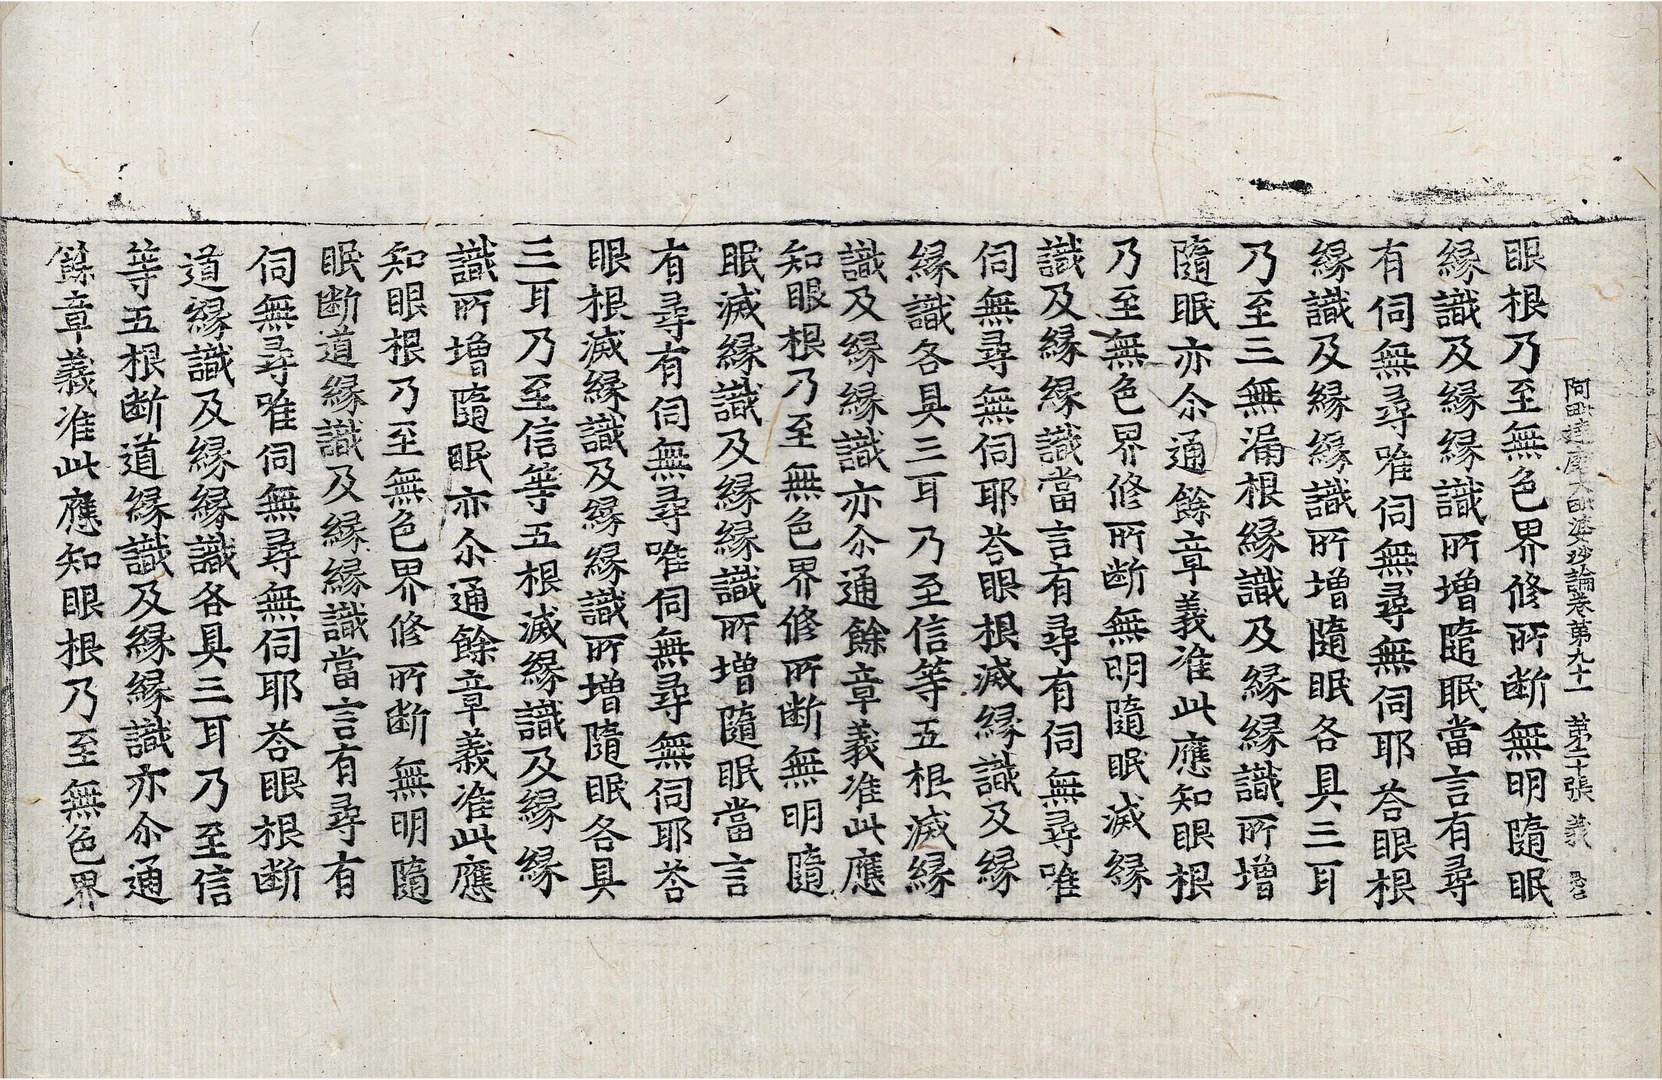 阿毗達磨大毗婆沙論卷第九十一　第二十張　義
眼根乃至無色界修所断無明隨眠
縁識及縁縁識所増隨眠當言有尋
有伺無尋唯伺無尋無伺耶荅眼根
縁識及縁縁識所増隨眠各具三耳
乃至三無漏根縁識及縁縁識所増
隨眠亦尒通餘章義准此應知眼根
乃至無色界修所断無明隨眠滅縁
識及縁縁識當言有尋有伺無尋唯
伺無尋無伺耶荅眼根滅縁識及縁
縁識各具三耳乃至信等五根滅縁
識及縁縁識亦尒通餘章義准此應
知眼根乃至無色界修所断無明隨
眠滅縁識及縁縁識所増隨眠當言
有尋有伺無尋唯伺無尋無伺耶荅
眼根滅縁識及縁縁識所増隨眠各具
三耳乃至信等五根滅縁識及縁縁
識所増隨眠亦尒通餘章義准此應
知眼根乃至無色界修所断無明隨
眠断道縁識及縁縁識當言有尋有
伺無尋唯伺無尋無伺耶荅眼根断
道縁識及縁縁識各具三耳乃至信
等五根断道縁識及縁縁識亦尒通
餘章義准此應知眼根乃至無色界